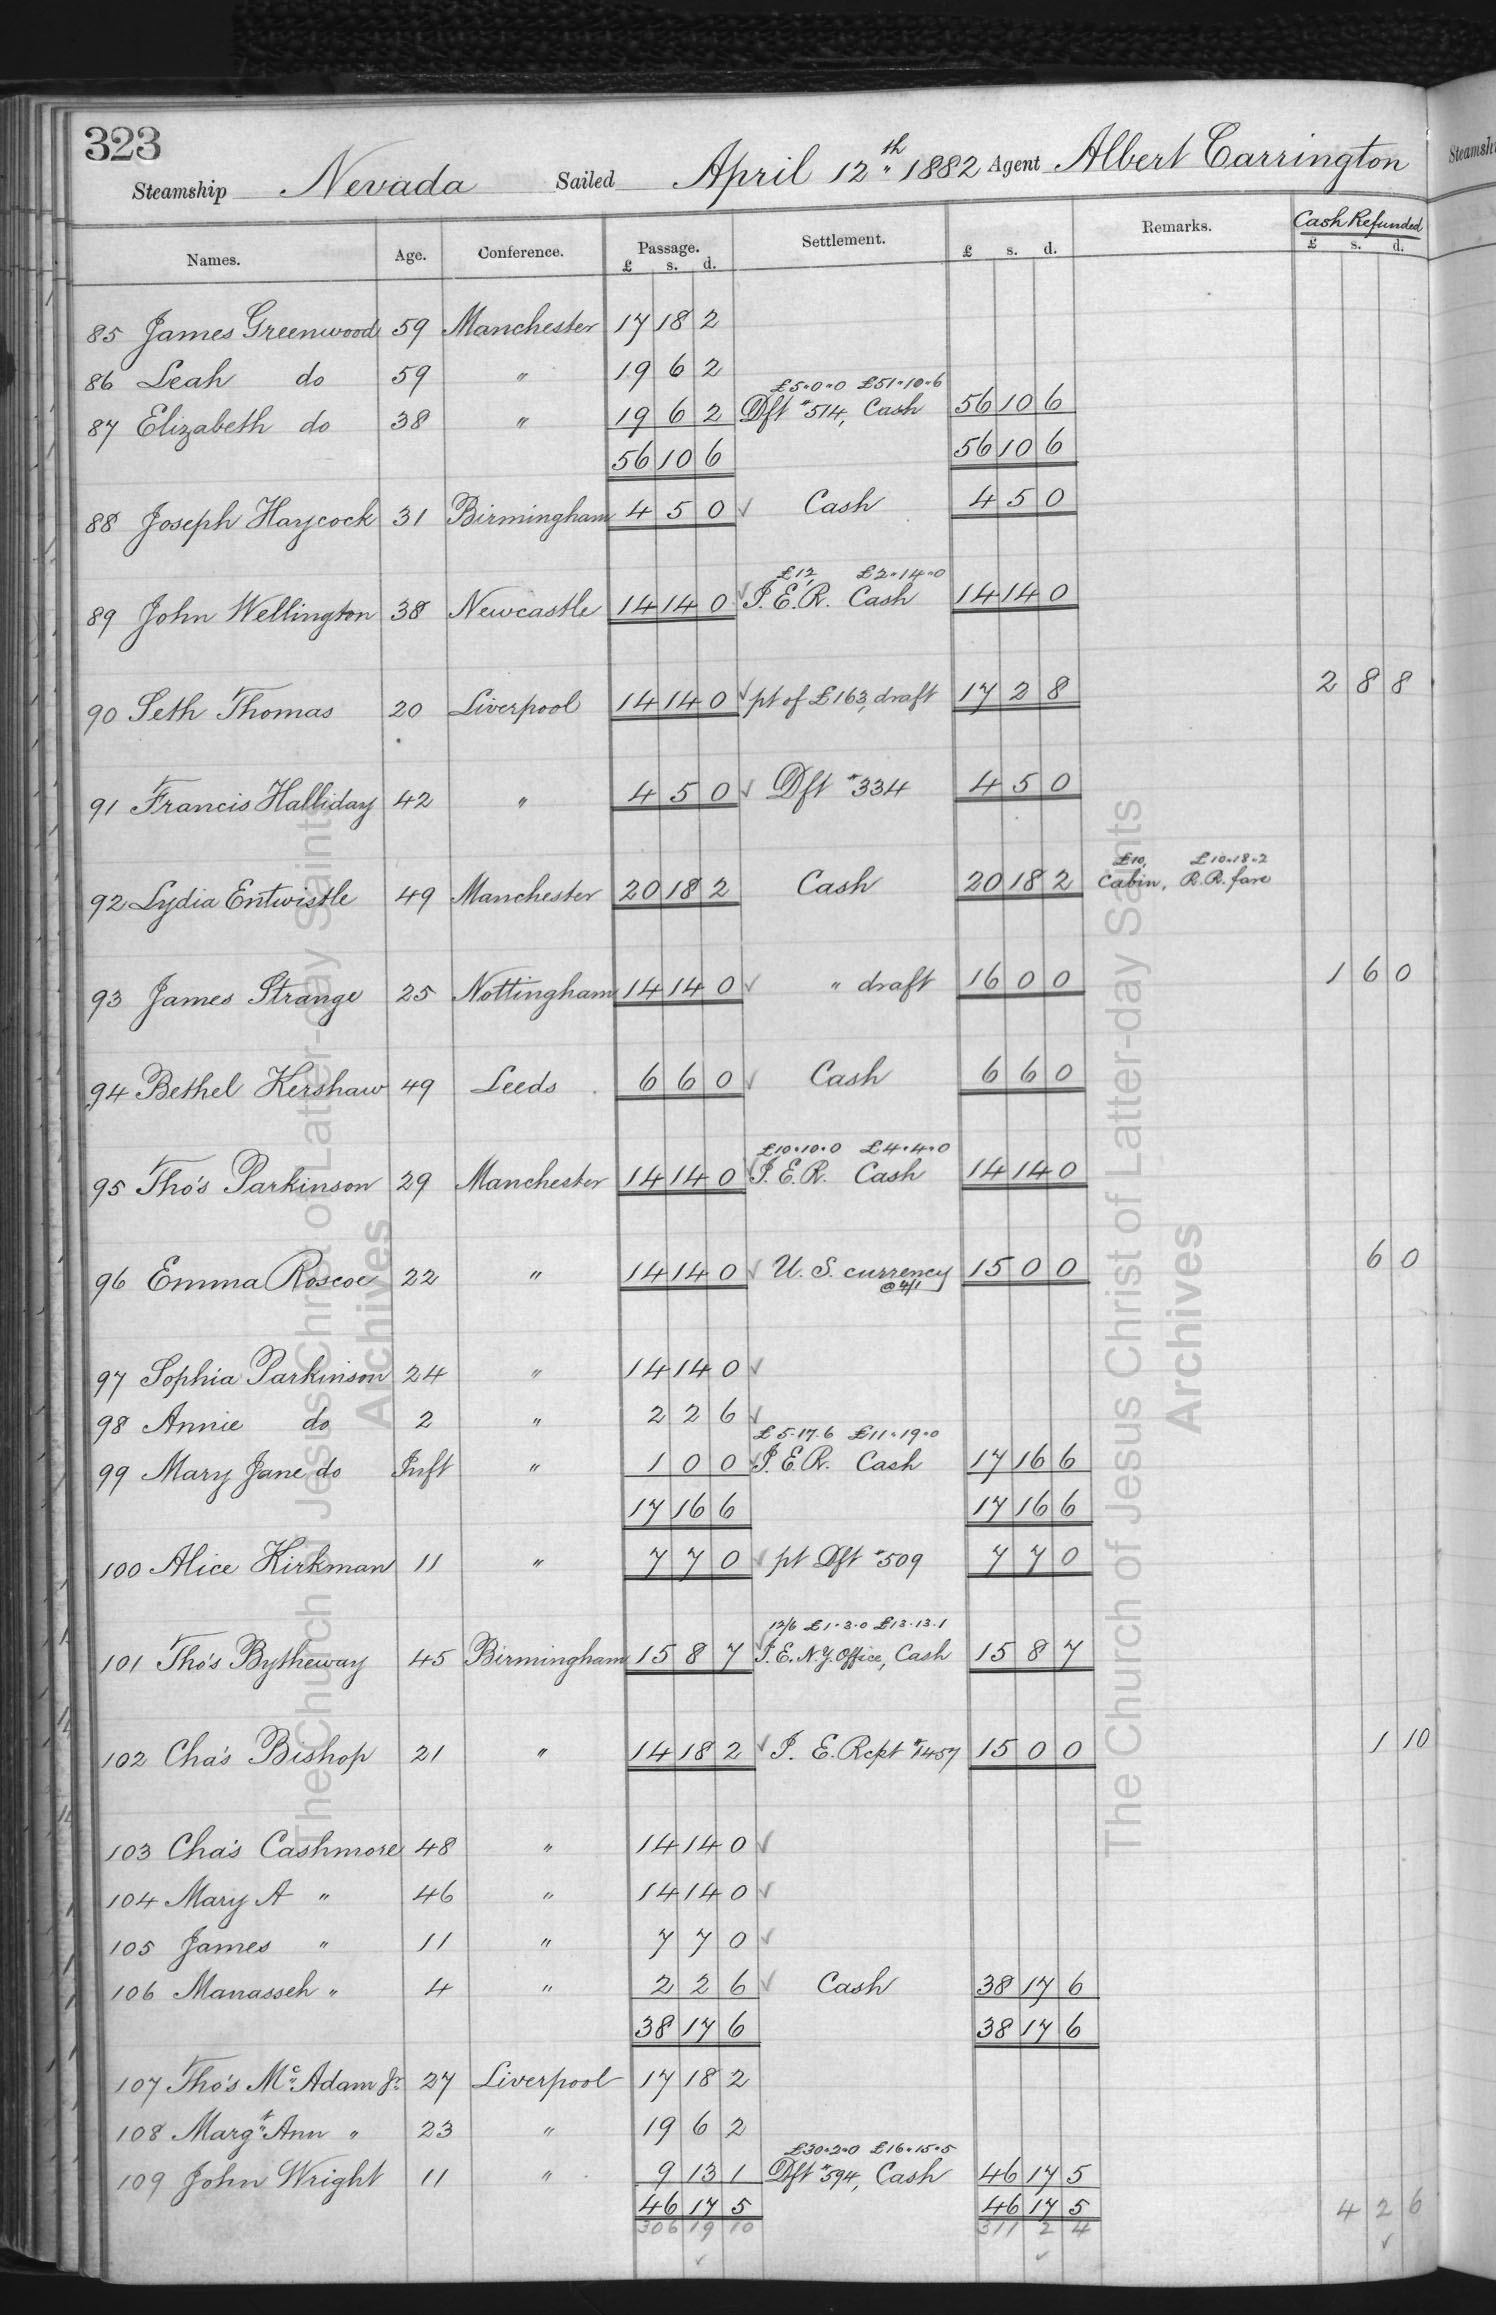 323
Steamship Nevada Sailed April 12th 1882 Agent Albert Carrington
Names. Age. Conference. Passage. Settlement. Remarks. Cash Refunded
£ s. d. £ s. d. £ s. d.
85 James Greenwood 59 Manchester 17 18 2
86 Leah do 59 " 19 6 2
£5"0"0 £51"10"6
87 Elizabeth do 38 " 19 6 2 Dft #514, Cash 56 10 6
56 10 6 56 10 6
88 Joseph Haycock 31 Birmingham 4 5 0 ✓ Cash 4 5 0
£12, £2"14"0
89 John Wellington 38 Newcastle 14 14 0 ✓ I.E.R. Cash 14 14 0
90 Seth Thomas 20 Liverpool 14 14 0 ✓ pt of £163, draft 17 2 8 2 8 8
91 Francis Halliday 42 " 4 5 0 ✓ Dft #334 4 5 0
£10, £10"18"2
92 Lydia Entwistle 49 Manchester 20 18 2 Cash 20 18 2 Cabin, R.R. fare
93 James Strange 25 Nottingham 14 14 0 ✓ " draft 16 0 0 1 6 0
94 Bethel Kershaw 49 Leeds 6 6 0 ✓ Cash 6 6 0
£10"10"0 £4"4"0
95 Tho's Parkinson 29 Manchester 14 14 0 ✓ I.E.R. Cash 14 14 0
96 Emma Roscoe 22 " 14 14 0 ✓ U.S. currency 15 0 0 6 0
@ 4/1
97 Sophia Parkinson 24 " 14 14 0 ✓
98 Annie do 2 " 2 2 6 ✓
£5.17.6 £11"19"0
99 Mary Jane do Inft " 1 0 0 ✓ I.E.R. Cash 17 16 6
17 16 6 17 16 6
100 Alice Kirkman 11 " 7 7 0 ✓ pt Dft #509 7 7 0
12/6 £1"3"0 £13.13.1
101 Tho's Bytheway 45 Birmingham 15 8 7 ✓ I.E. N.Y. Office, Cash 15 8 7
102 Cha's Bishop 21 " 14 18 2 ✓ I. E. Rcpt #1457 15 0 0 1 10
103 Cha's Cashmore 48 " 14 14 0 ✓
104 Mary A " 46 " 14 14 0 ✓
105 James " 11 " 7 7 0 ✓
106 Manasseh " 4 " 2 2 6 ✓ Cash 38 17 6
38 17 6 38 17 6
107 Tho's Mc Adam Jr 27 Liverpool 17 18 2
108 Margt Ann " 23 " 19 6 2
£30"2"0 £16"15"5
109 John Wright 11 " 9 13 1 Dft #594, Cash 46 17 5
46 17 5 46 17 5
306 19 10 311 2 4 4 2 6
✓ ✓ ✓
The Church of Jesus Christ of Latter-day Saints
Archives
The Church of Jesus Christ of Latter-day Saints
Archives